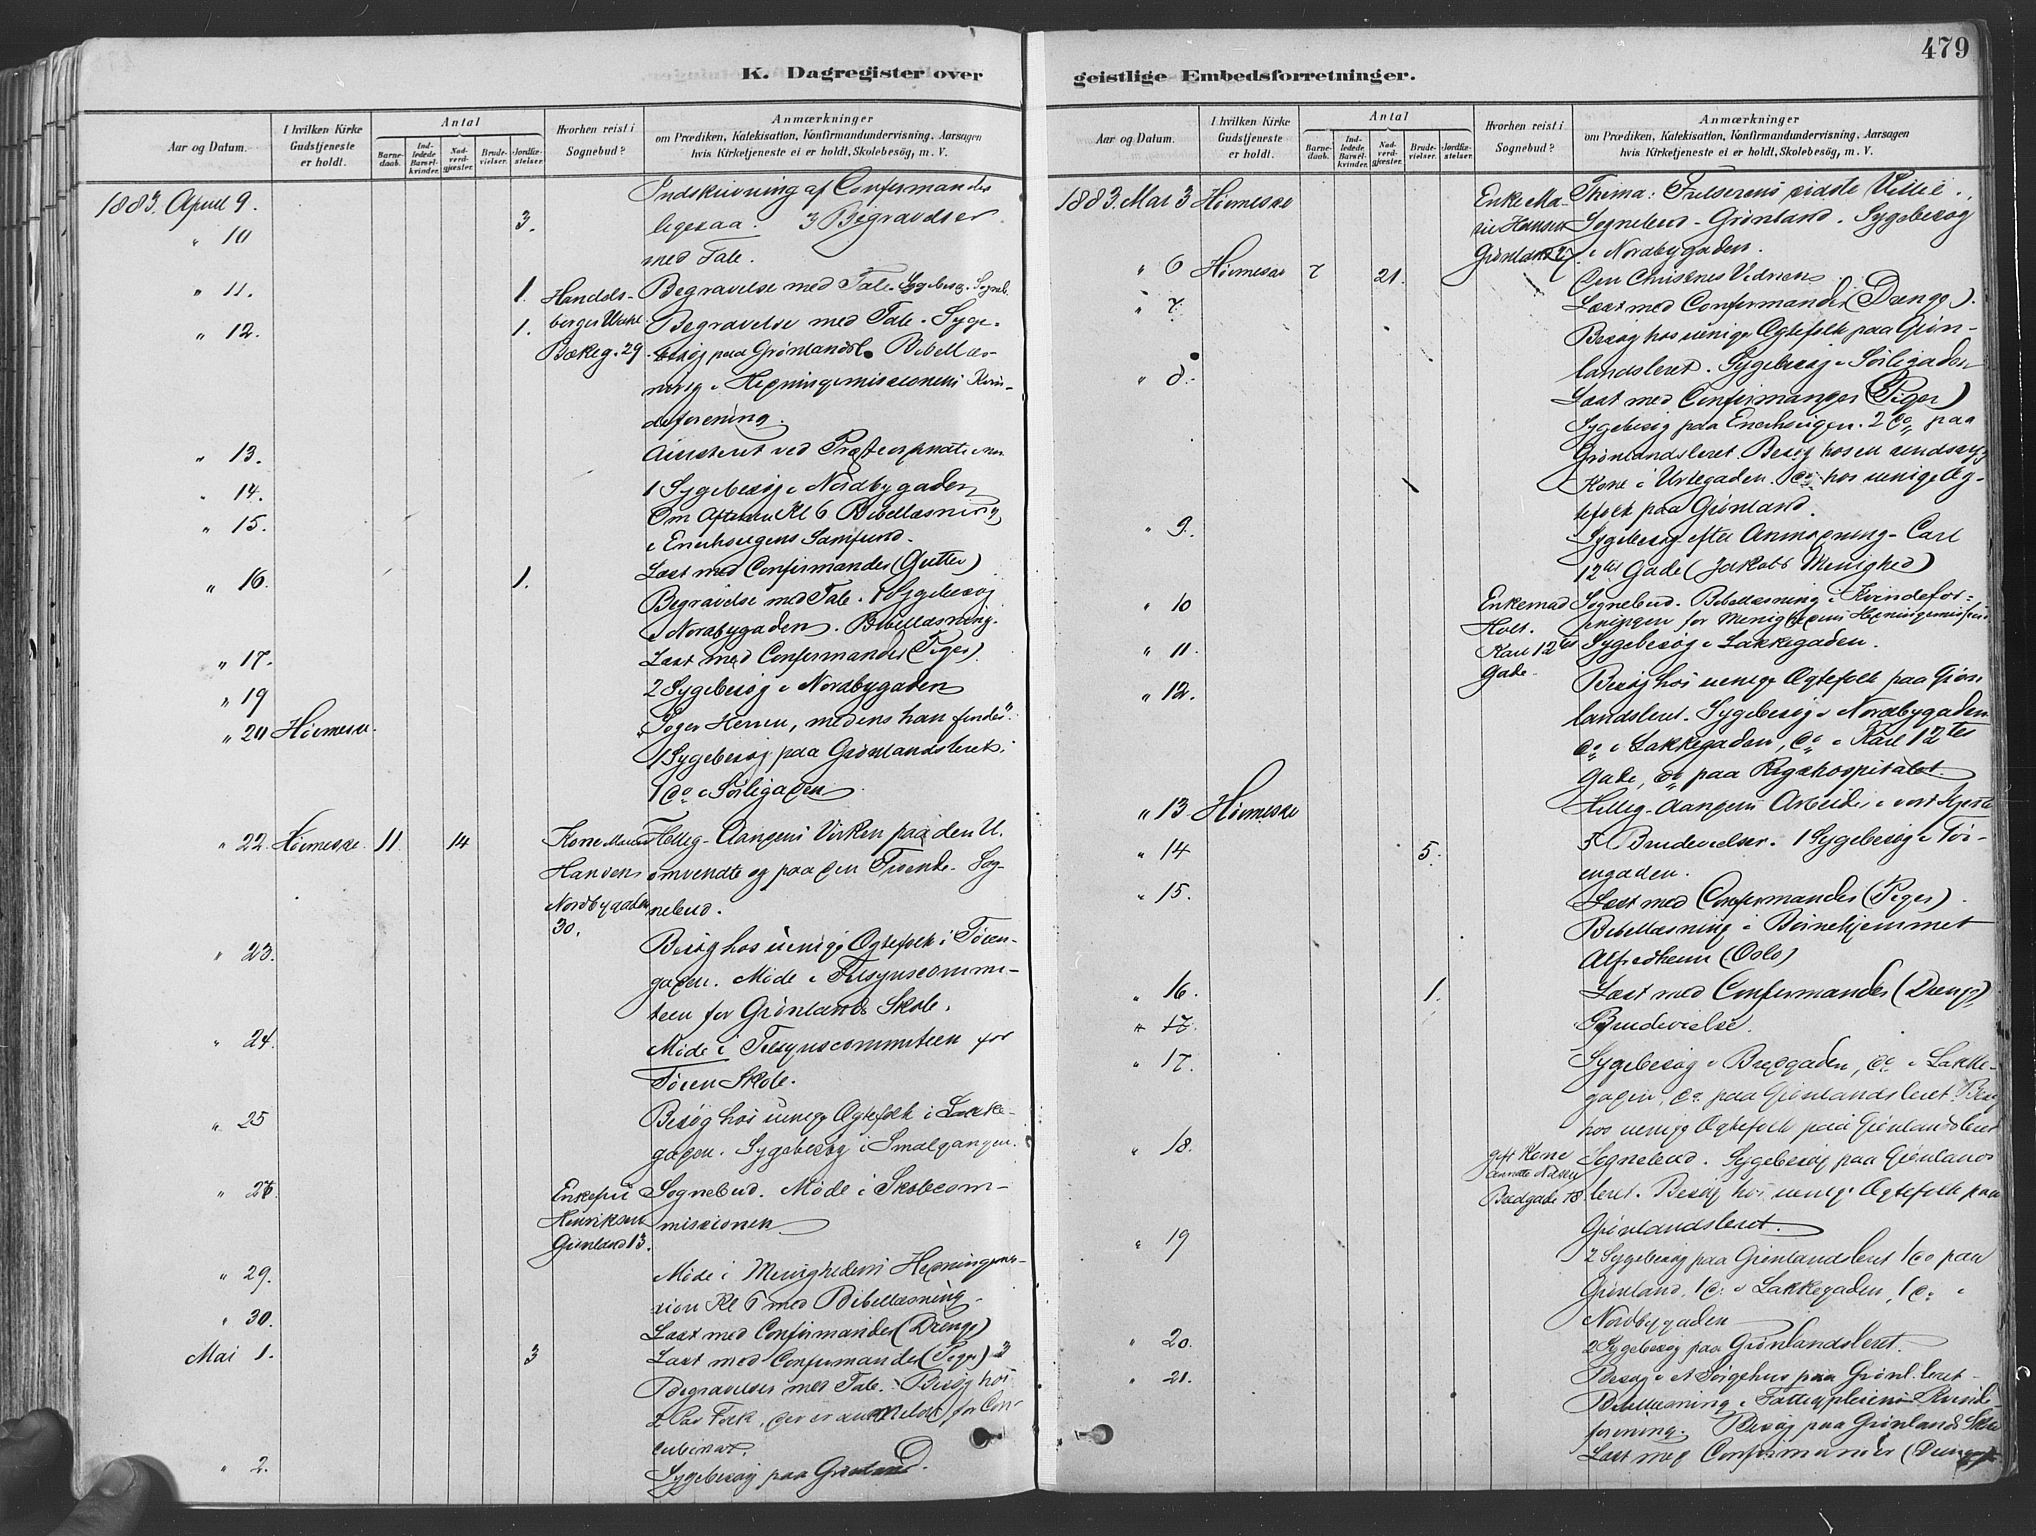 479
K. Dagregister over geistlige Embedsforretninger.
Aar og Datum.
I hvilken Kirke Gudstjeneste er holdt.
Antal
Barnedaab.
Indledede Barselkvinder.
Nadverdgjæster.
Brudevielser.
Jordfæstelser.
Hvorhen reist i Sognebud?
Anmærkninger
om Prædiken, Katekisation, Konfirmandundervisning, Aarsagen
hvis Kirketjeneste ei er holdt, Skolebesøg, m. V.
1883. April 9. Indskrivning af Confirmander
" 10 3. ligesaa. 3 Begravelser
med Tale.
" 11. 1. Handels- Begravelse med Tale. Sygebesøg. Sogneb.
" 12. 1. borger Begravelse med Tale. Syge-
Bækkeg. 29. besøg paa Grønlandsl. Bibellæs-
ning i Hedningemissionens Kvin-
deforening.
" 13. Assisteret ved
" 14. 1 Sygebesøg i Nordbygaden
" 15. Om Aftenen Kl 6 Bibellæsning
i Enerhaugens Samfund.
" 16. 1. Læst med Confirmander (Gutter)
Begravelse med Tale. 1 Sygebesøg
i Nordbygaden. Bibellæsning.
" 17. Læst med Confirmander (Piger).
" 19 2 Sygebesøg i Nordbygaden
" 20 Høimesse. "Søger Herren, medens han findes".
1 Sygebesøg paa Grønlandsleret.
1 do i Sørligaden
" 22. Høimesse. 11 14 Kone Hellig-Aandens Virken paa den U-
Hansen omvendte og paa den Troende. Sog-
Nordbygaden nebud.
30.
" 23. Besøg hos uenige Ægtefolk i Tøien-
gaden. Møde i Tilsynscommi-
teen for Grønlands Skole.
" 24. Møde i Tilsynscommiteen for
Tøien Skole.
" 25 Besøg hos uenige Ægtefolk i Lakke-
gaden. Sygebesøg i Smalgangen.
" 26 Enkefru Sognebud. Møde i Skolecom-
Henriksen missionen
Grønland 13.
" 29. Møde i Menighedens Hedningemis-
sion Kl 6 med Bibellæsning.
" 30. Læst med Confirmander (Drenge)
Mai 1. 3 Læst med Confirmander (Piger) 3
Begravelser med Tale. Besøg hos
2 Par Folk, der er anmeldt for Con-
cubinat.
" 2. Sygebesøg paa Grønland.
K. Dagregister over geistlige Embedsforretninger.
Aar og Datum.
I hvilken Kirke Gudstjeneste er holdt.
Antal
Barnedaab.
Indledede Barselkvinder.
Nadverdgjæster.
Brudevielser.
Jordfæstelser.
Hvorhen reist i Sognebud?
Anmærkninger
om Prædiken, Katekisation, Konfirmandundervisning, Aarsagen
hvis Kirketjeneste ei er holdt, Skolebesøg, m. V.
1883. Mai 3 Høimesse Enke Ma- Thema: Frelserens sidste Villie.
rie Hansen Sognebud - Grønland. Sygebesøg
Grønland 27 i Nordbygaden.
" 6 Høimesse 7 21. Den Christnes Vidnen.
" 7. Læst med Confirmander (Drenge).
Besøg hos uenige Ægtefolk paa Grøn-
landsleret. Sygebesøg i Sørligaden
" 8. Læst med Confirmander (Piger)
Sygebesøg paa Enerhaugen. 2 do paa
Grønlandsleret. Besøg hos en sindssyg
Kone i Urtegaden. do hos uenige Æg-
tefolk paa Grønland.
" 9. Sygebesøg efter Anmodning - Carl
12tes Gade (Jakobs Menighed)
" 10 Enkemad Sognebud. Bibellæsning i Kvindefor-
Holt. eningen for Menighedens Hedningemission
" 11. Karl 12tes Sygebesøg i Lakkegaden.
" 12. Gade. Besøg hos uenige Ægtefolk paa Grøn-
landsleret. Sygebesøg i Nordbygaden
do i Lakkegaden, do i Karl 12tes
Gade, do paa Rigshospitalet.
" 13 Høimesse Hellig-Aandens Arbeide i vort Hjerte
" 14 5. 5 Brudevielser. 1 Sygebesøg i Tøi-
engaden.
" 15. Læst med Confirmander (Piger).
Bibellæsning i Børnehjemmet
Alfredheim (Oslo)
" 16. 1. Læst med Confirmander (Drenge)
" 17. Brudevielse.
" 17. Sygebesøg i Bredgaden, do i Lakke-
gaden, do paa Grønlandsleret. Besøg
hos uenige Ægtefolk paa Grønlandsleret
" 18. gift Kone Sognebud. Sygebesøg paa Grønlands-
Bredgade 18 leret. Besøg hos uenige Ægtefolk paa
Grønlandsleret.
" 19 2 Sygebesøg paa Grønlandsleret 1 do paa
Grønland, 1 do i Lakkegaden, 1 do i
Nordbygaden
" 20. 2 Sygebesøg paa Grønlandsleret.
" 21. Besøg i et Sørgehus paa Grønl.leret.
Bibellæsning i Fattigpleiens Kvinde-
forening. Besøg paa Grønlands Skole
Læst med Confirmander (Drenge)